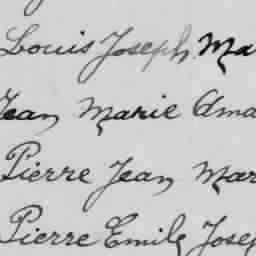 Louis Joseph Ma
Jean Marie Ama
Pierre Jean Mar
Pierre Emile Josep